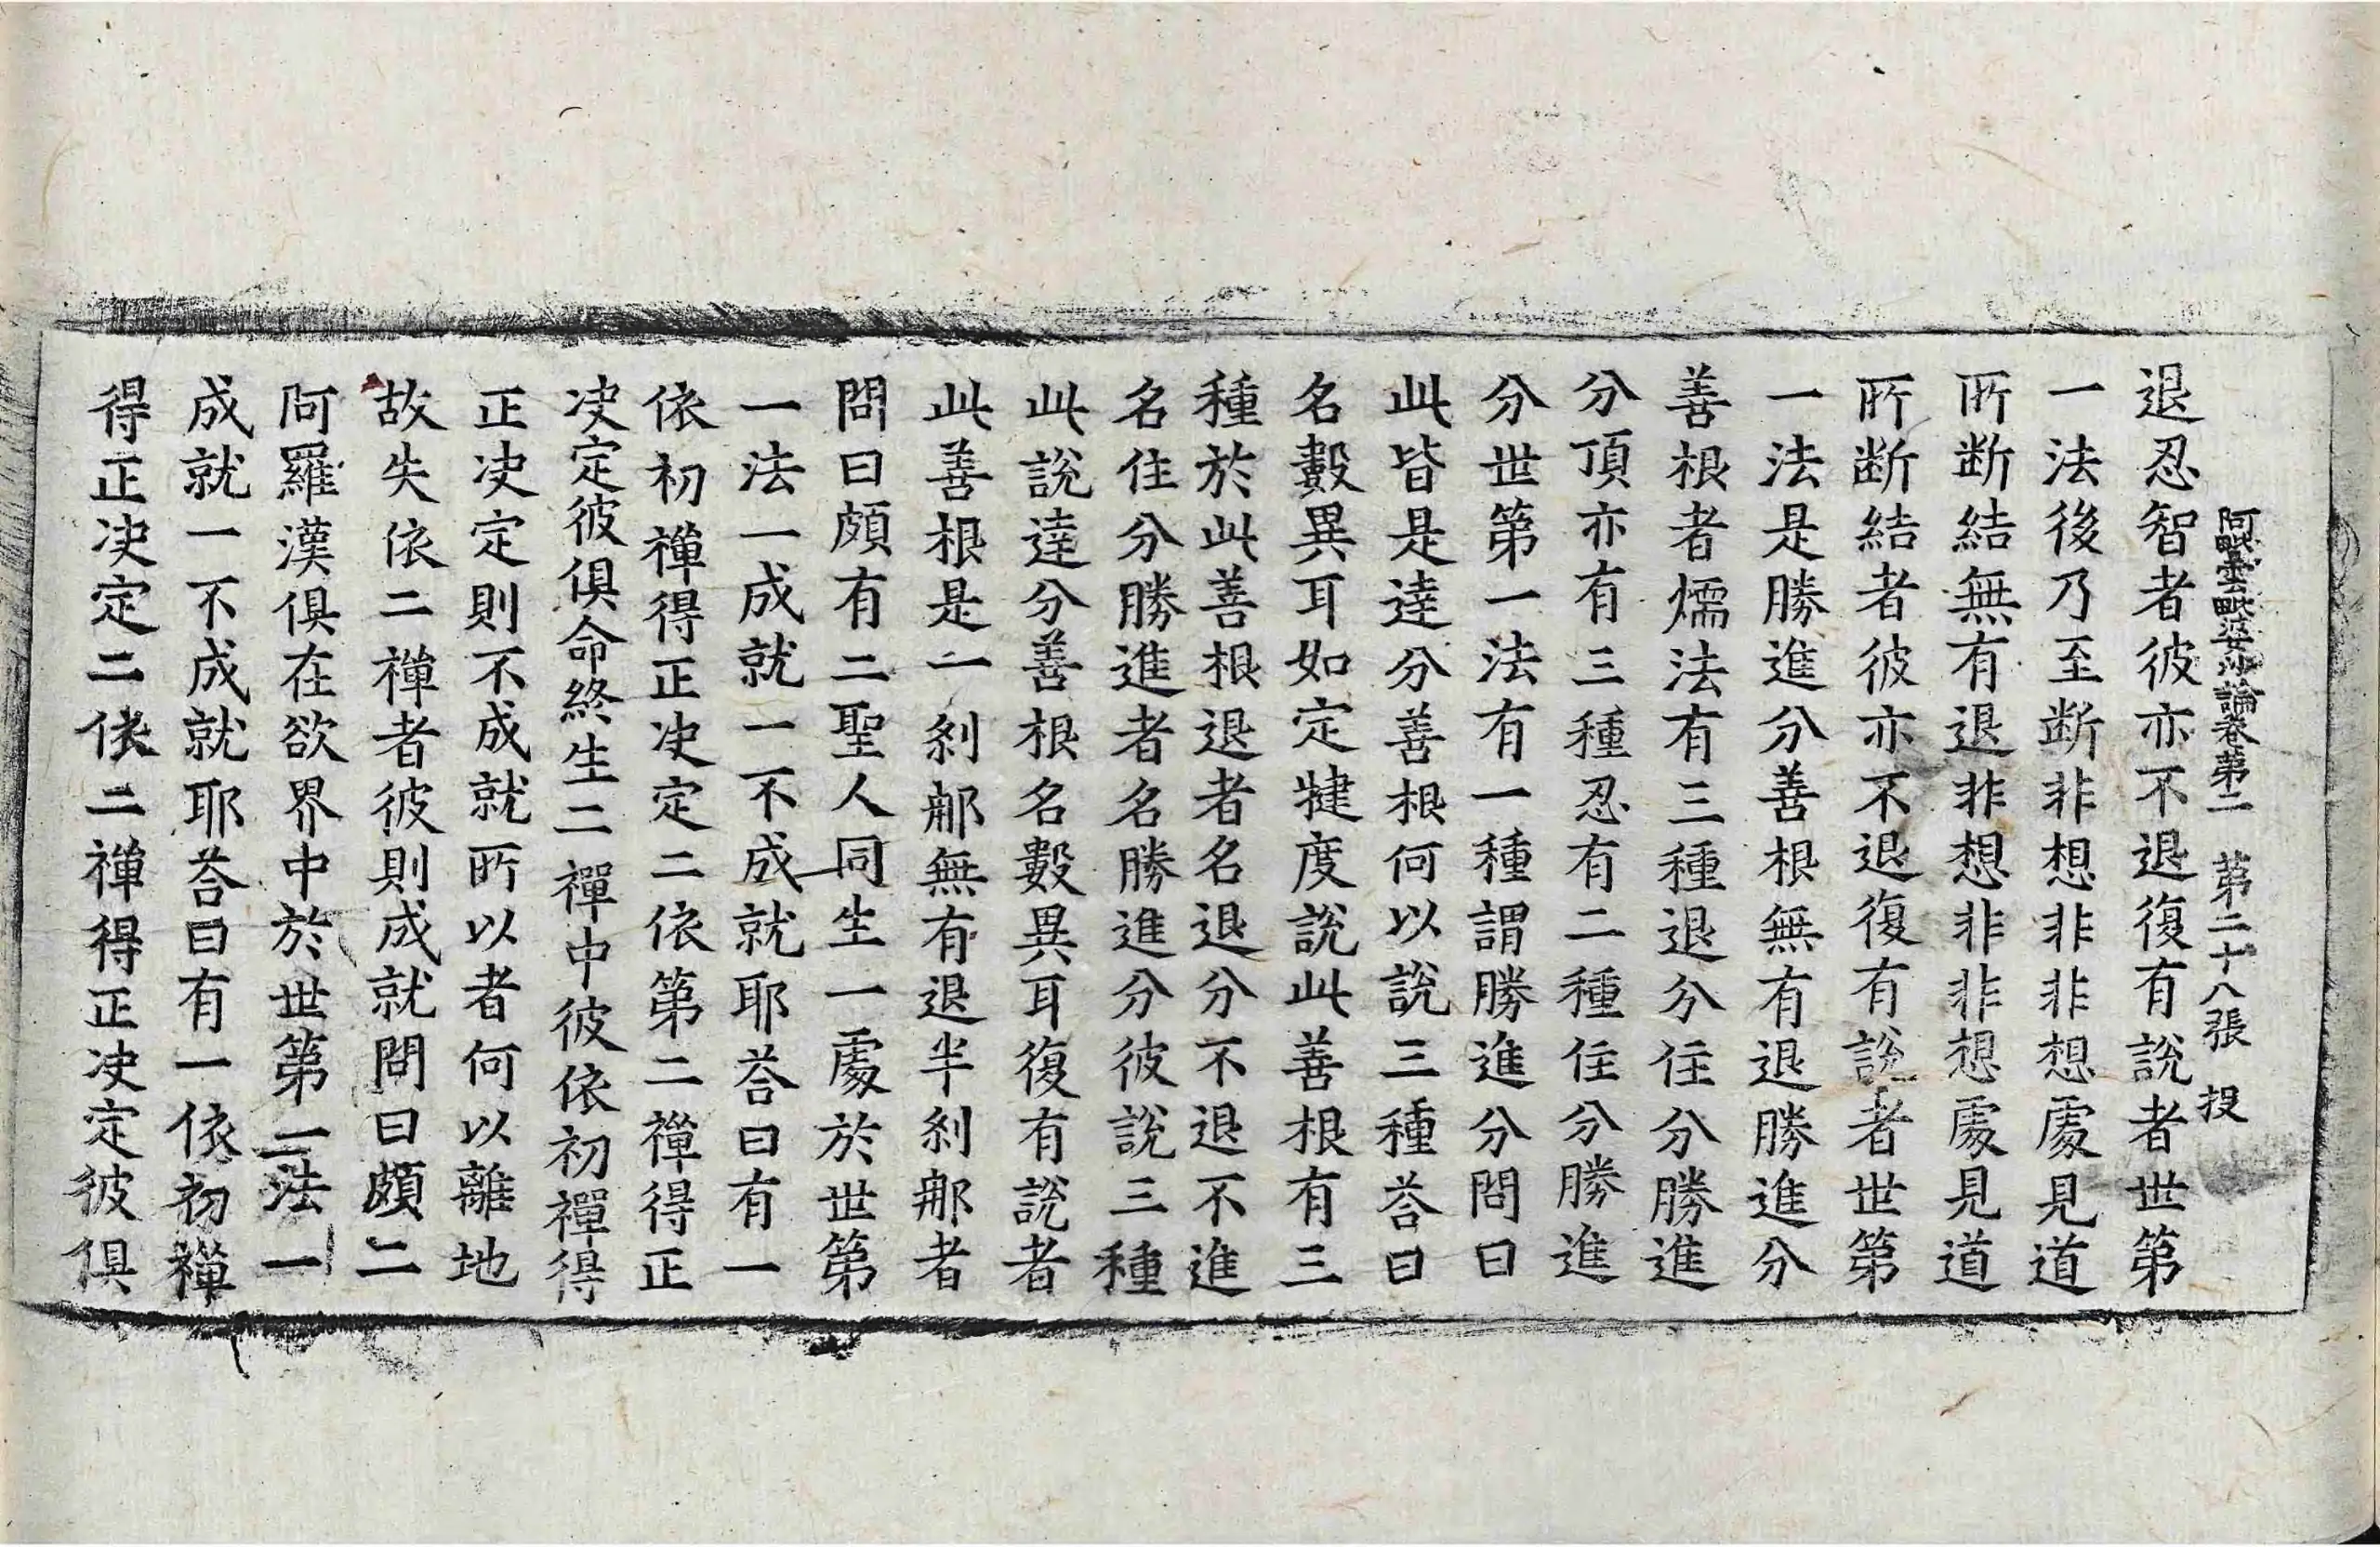 阿毗曇毗婆沙論卷第二　第二十八張　投
退忍智者彼亦不退復有說者世第
一法後乃至斷非想非非想處見道
所斷結無有退非想非非想處見道
所斷結者彼亦不退復有說者世第
一法是勝進分善根無有退勝進分
善根者燸法有三種退分住分勝進
分頂亦有三種忍有二種住分勝進
分世第一法有一種謂勝進分問曰
此皆是達分善根何以說三種荅曰
名數異耳如定揵度說此善根有三
種於此善根退者名退分不退不進
名住分勝進者名勝進分彼說三種
此說達分善根名數異耳復有說者
此善根是一剎那無有退半剎那者
問曰頗有二聖人同生一處於世第
一法一成就一不成就耶荅曰有一
依初禪得正決定二依第二禪得正
決定彼俱命終生二禪中彼依初禪得
正決定則不成就所以者何以離地
故失依二禪者彼則成就問曰頗二
阿羅漢俱在欲界中於世第一法一
成就一不成就耶荅曰有一依初禪
得正決定二依二禪得正決定彼俱